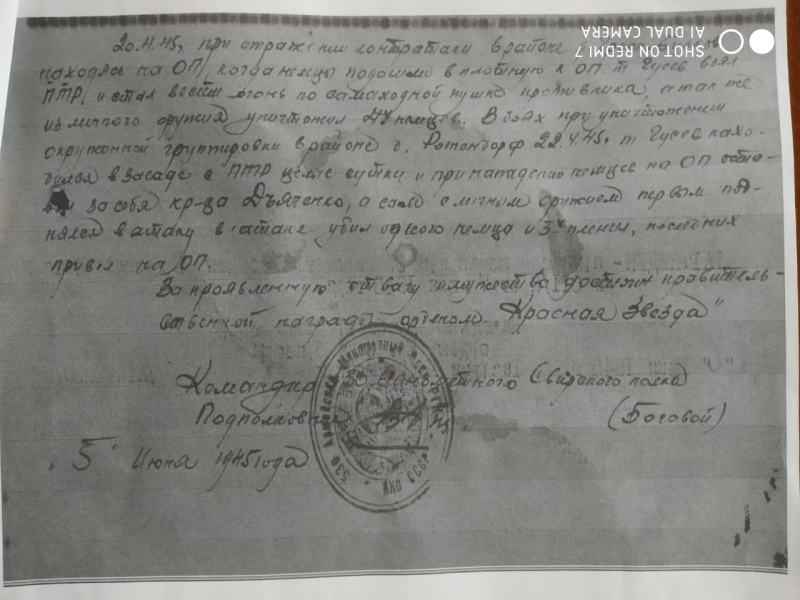 20.4.45г. при отражении контратаки в районе
находясь на ОП, когда немцы подошли в плотную к ОП т. Гусев взял
ПТР, и стал вести огонь по самоходной пушке противника, а так же
из личного оружия уничтожил немцев. В боях при уничтожении
окруженной группировки в районе 22.4.45г. т Гусев нахо-
дился в засаде с ПТР целые сутки и при нападении немцев на ОП оста-
вил за себя кр-ца Дьяченко, а сам с личным оружием первым под-
нялся в атаку в атаке убил одного немца и 3х пленил, последних
привел на ОП.
За проявленную отвагу и мужества достоин правитель-
ственной награды орденом "Красная Звезда"
Командир Минометного Свирского полка
Подполковник (Боговой)
"5" Июня 1945 года
530
SHOT ON REDMI 7
AI DUAL CAMERA